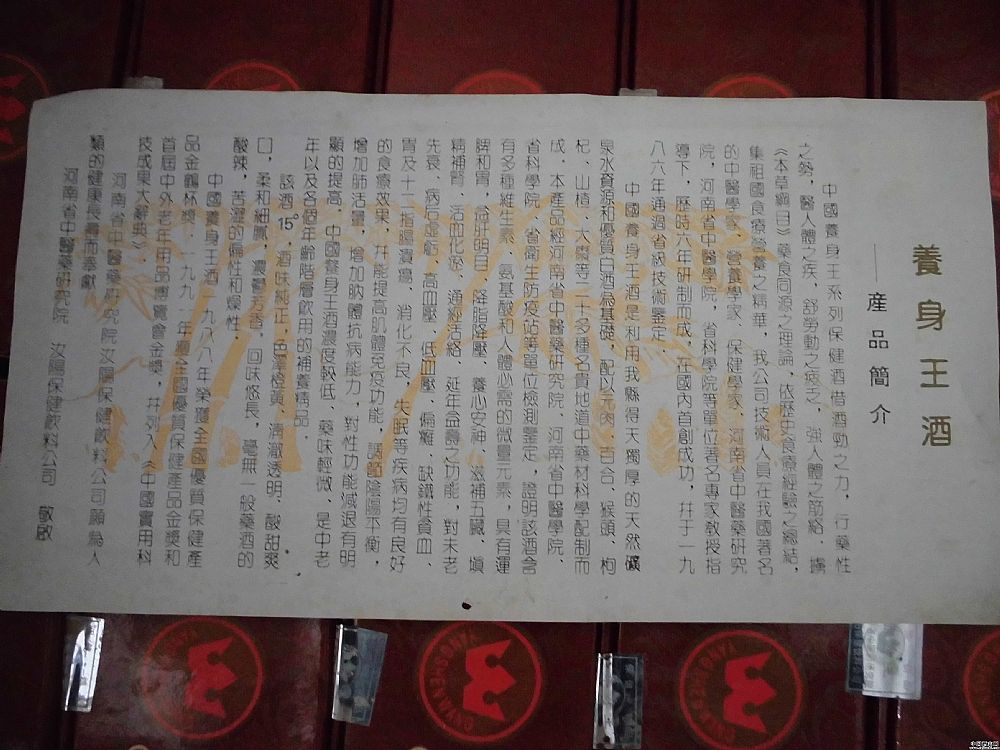 養身王酒
——産品簡介
中國養身王系列保健酒借酒勁之力，行藥性
之勢，醫人體之疾，舒勞動之疲乏，強人體之筋絡，據
《本草綱目》藥食同源之理論，依歷史食療經驗之總結，
集祖國食療營養之精華，我公司技術人員在我國著名
的中醫學家、營養學家、保健學家、河南省中醫藥研究
院，河南省中醫學院，省科學院等單位著名專家教授指
導下，歷時六年研制而成。在國內首創成功，并于一九
八六年通過省級技術鑒定。
中國養身王酒是利用我縣得天獨厚的天然礦
泉水資源和優質白酒爲基礎，配以元肉，百合、猴頭、枸
杞、山楂、大棗等二十多種名貴地道中藥材科學配制而
成。本產品經河南省中醫藥研究院、河南省中醫學院、
省科學院、省衛生防疫站等單位檢測鑒定，證明該酒含
有多種維生素、氨基酸和人體必需的微量元素，具有運
脾和胃、益肝明目、降脂降壓、養心安神、滋補五臟、填
精補腎、活血化瘀、通經活絡、延年益壽之功能，對未老
先衰、病后虛虧、高血壓、低血壓、偏癱、缺鐵性貧血、
胃及十二指腸潰瘍、消化不良、失眠等疾病均有良好
的食療效果，并能提高肌體免疫功能，調節陰陽平衡，
增加肺活量，增加肭體抗病能力，對性功能減退有明
顯的提高。中國養身王酒濃度較低、藥味輕微、是中老
年以及各個年齡階層飲用的補養精品。
該酒15°，酒味純正，色澤橙黃、清澈透明、酸甜爽
口，柔和細膩，濃鬱芳香，回味悠長，毫無一般藥酒的
酸辣，苦澀的偏性和燥性。
中國養身王酒一九八八年榮獲全國優質保健產
品金鶴杯獎，一九九一年獲全國優質保健產品金獎和
首屆中外老年用品博覽會金獎，并列入《中國實用科
技成果大辭典》。
河南省中醫藥研究院汝陽保健飲料公司願爲人
類的健康長壽而奉獻
河南省中醫藥研究院 汝陽保健飲料公司 敬啟